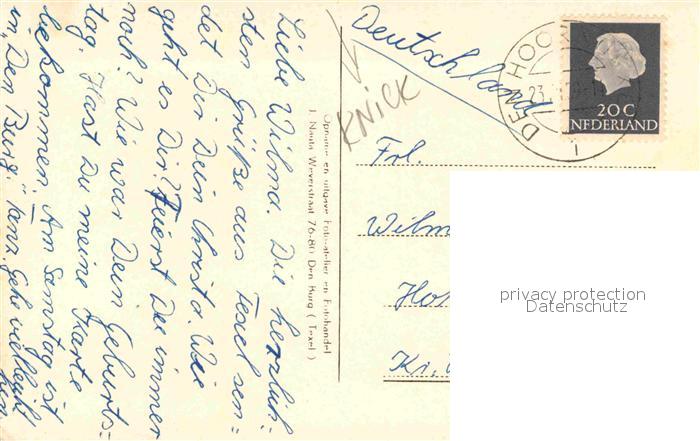 Liebe Wilma. Die herzlich=
sten Grüße aus Texel sen=
det Dir Dein Christa. Wie
geht es Dir? Feierst Du immer
noch? Wie war Dein Geburts=
tag. Hast Du meine Karte
bekommen. Am Samstag ist
in „Den Burg" Tanz. Gehe vielleicht
hin.
Opname en uitgave Foto-atelier en Fotohandel
J. Nauta Weverstraat 76-80 Den Burg ( Texel )
KNICK
Deutschland
DEN HOORN
23
20 C
NEDERLAND
Frl.
Wilm
Ho
Kr.
privacy protection
Datenschutz